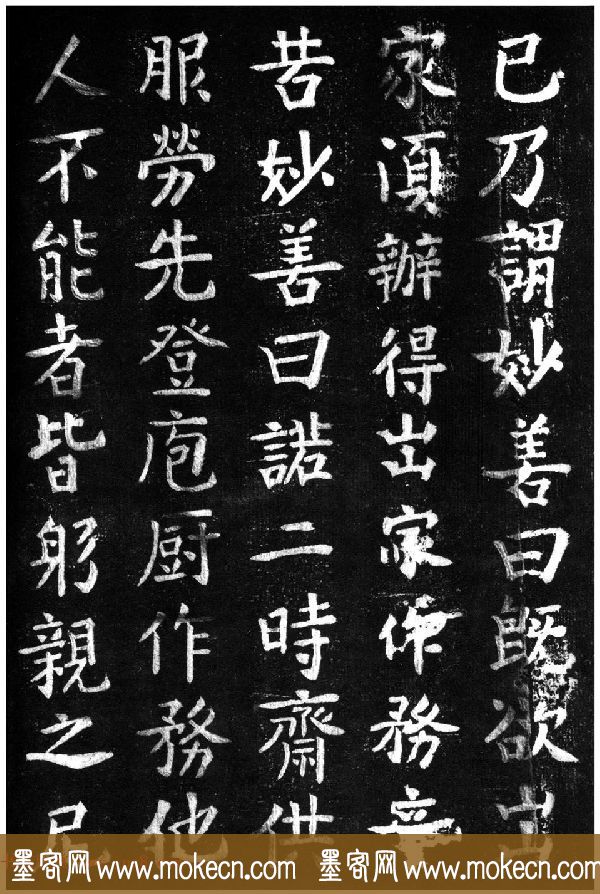 已乃謂妙善曰既欲出
家須辦得出家作務辛
苦妙善曰諾二時齋供
服勞先登庖厨作務他
人不能者皆躬親之尼
墨客网 www.mokecn.com 墨客网 www.mokecn.com